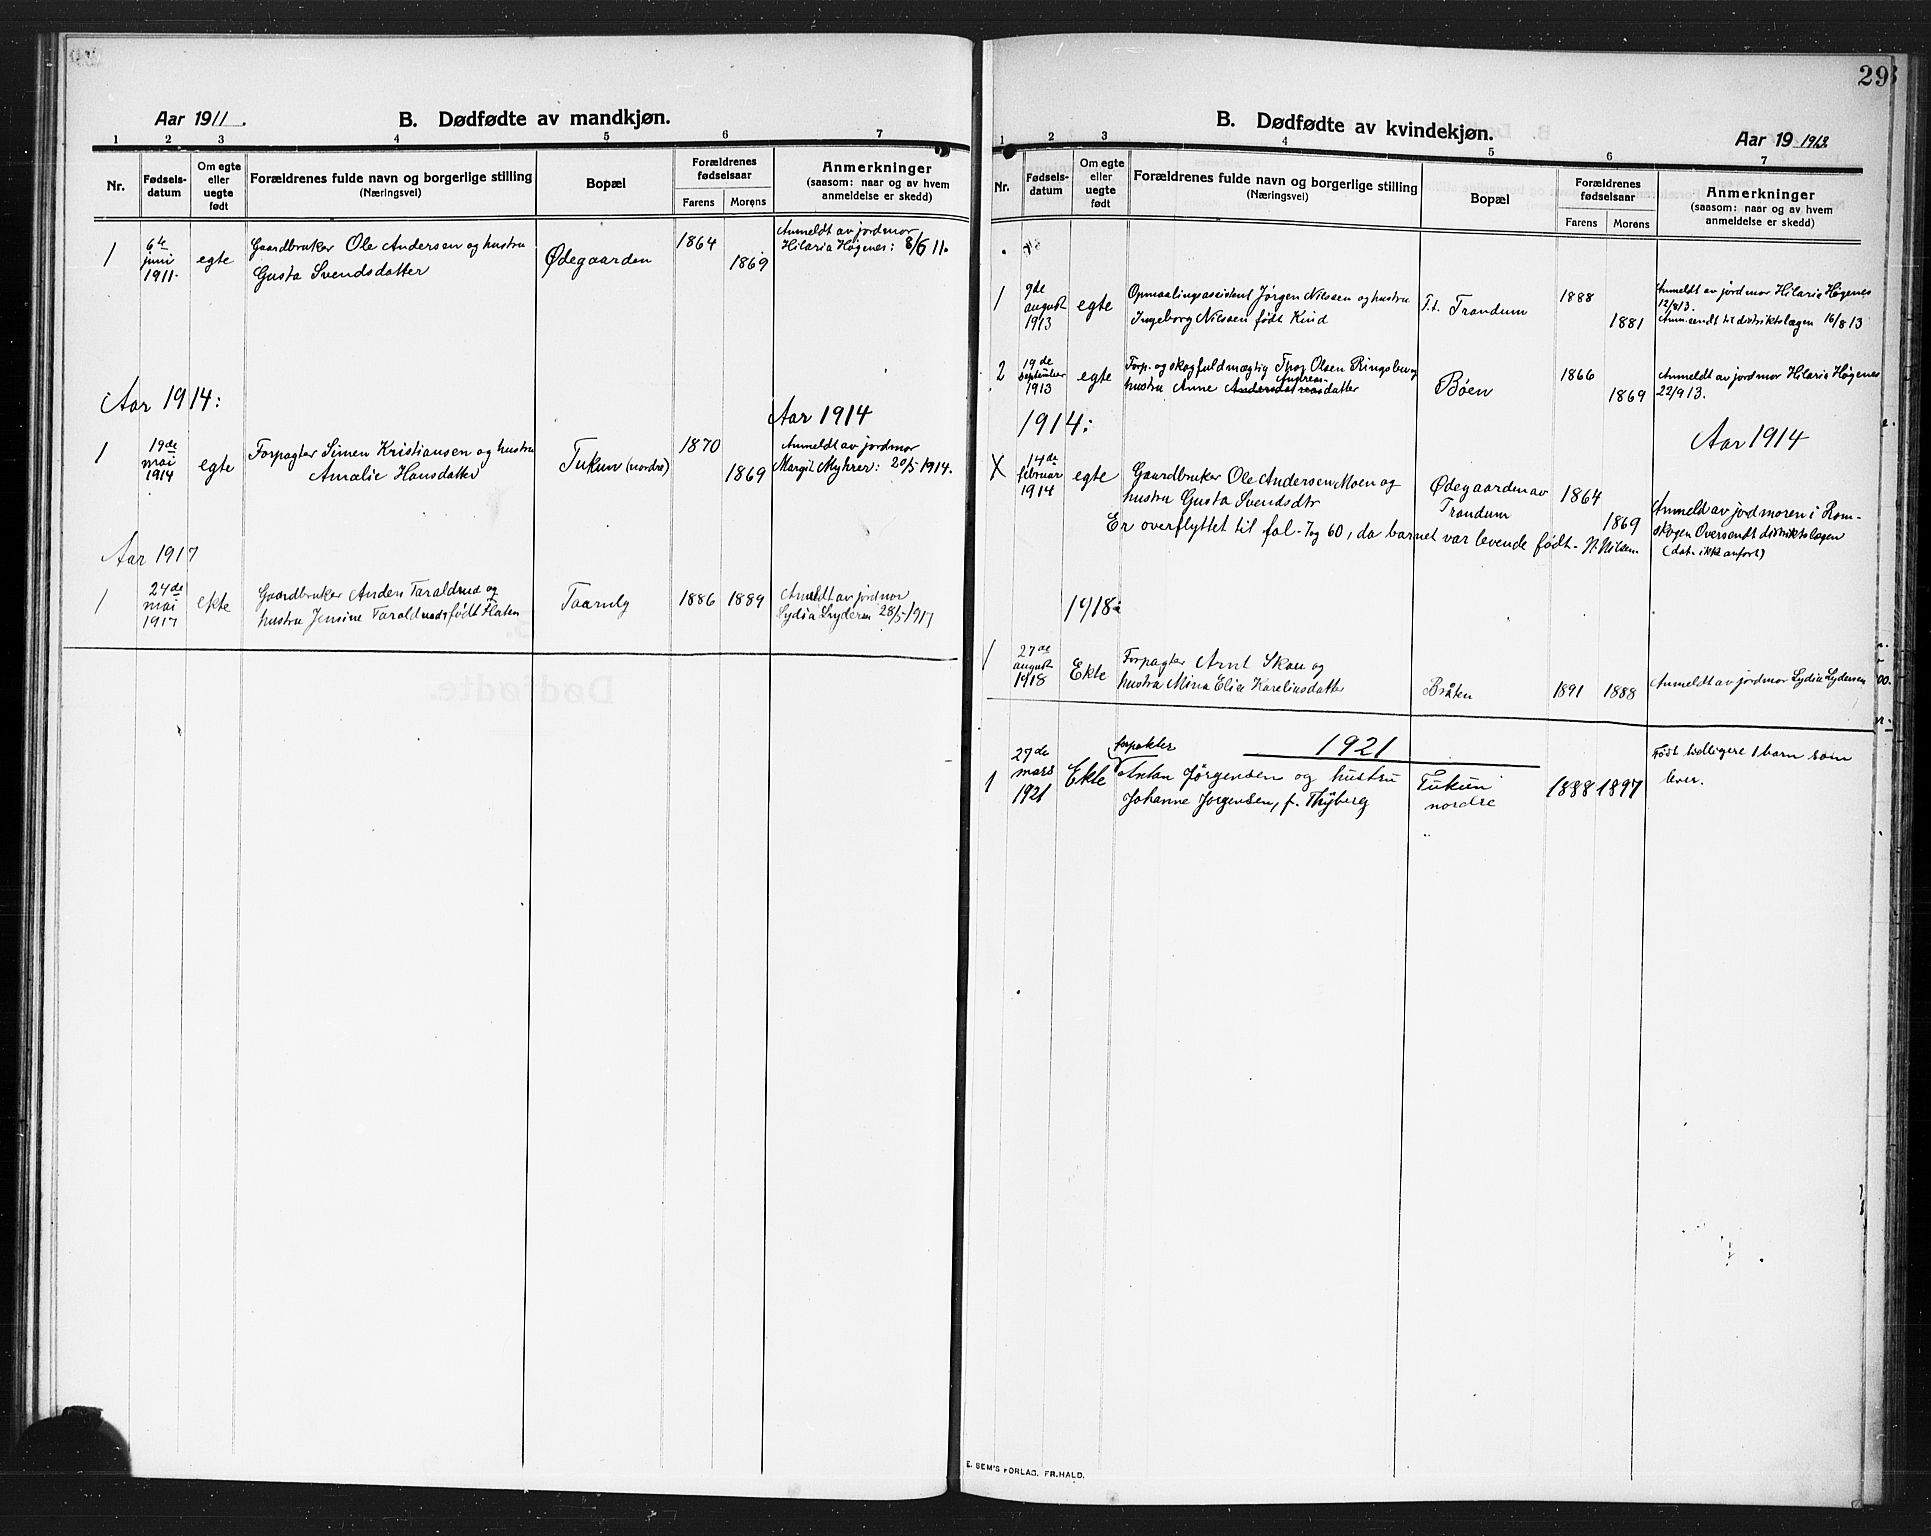 Aar 1911.
B. Dødfødte av mandkjøn.
1 2 3 4 5 6 7
Nr.
Fødsels-
datum
Om egte
eller
uegte
født
Forældrenes fulde navn og borgerlige stilling
(Næringsvei)
Bopæl
Forældrenes
fødselsaar
Farens Morens
Anmerkninger
(saasom: naar og av hvem
anmeldelse er skedd)
1
6te
juni
1911.
egte
Gaardbruker Ole Andersen og hustru
Gusta Svendsdatter
Ødegaarden
1864
1869
Anmeldt av jordmor
Hilaria Høgenes: 8/6 11.
Aar 1914:
Aar 1914
1
19de
mai
1914
egte
Forpagter Simen Kristiansen og hustru
Amalie Hansdatter
Tukun (nordre)
1870
1869
Anmeldt av jordmor
Margit Myhrer: 20/5 1914.
Aar 1917
1
24de
mai
1917
ekte
Gaardbruker Anders Taraldrud og
hustru Jensine Taraldrud født Flaten
Taarnby
1886 1889
Anmeldt av jordmor
Lydia Lydersen 28/5 1917
29
B. Dødfødte av kvindekjøn.
Aar 19 1913.
1 2 3 4 5 6 7
Nr.
Fødsels-
datum
Om egte
eller
uegte
født
Forældrenes fulde navn og borgerlige stilling
(Næringsvei)
Bopæl
Forældrenes
fødselsaar
Farens Morens
Anmerkninger
(saasom: naar og av hvem
anmeldelse er skedd)
1
9de
august
1913
egte
Opmaalingsassistent Jørgen Nilssen og hustru
Ingeborg Nilssen født Kind
T.t. Trandum
1888
1881
Anmeldt av jordmor Hilaria Høgenes
12/8 13.
Anm. sendt til distriktslægen 16/8 13
2
19de
september
1913
egte
Forp. og skogfuldmægtig Thor Olsen Ringsby og
hustru Anne Andreasdatter
Bøen
1866
1869
Anmeldt av jordmor Hilaria Høgenes
22/9 13.
1914:
Aar 1914
X
14de
februar
1914
egte
Gaardbruker Ole Andersen Moen og
hustru Gusta Svendsdtr
Ødegaarden av
Trandum
1864
1869
Anmeld av jordmoren i Røm-
skogen Oversendt distriktslægen
(dat. ikke anført)
Er overflyttet til fol. 7 og 60, da barnet var levende født - N. Nilsen.
1918:
1
27de
august
1918
Ekte
Forpagter Arnt Skau og
hustru Mina Elise Kareliusdatter
Bråten
1891 1888
Anmeldt av jordmor Lydia Lydersen
1921
1
27de
mars
1921
Ekte
forpakter
Anton Jørgensen og hustru
Johanne Jørgensen, f. Thyberg
Tukun
nordre
1888 1897
Født tidligere 1 barn som
lever.
E. SEM'S FORLAG, FR.HALD.